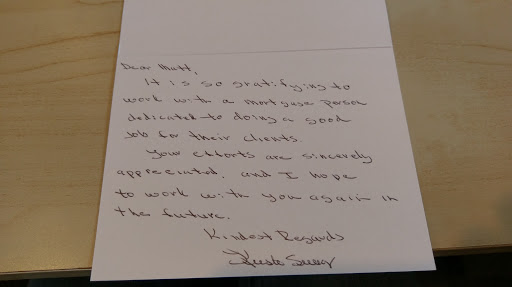 Dear Matt,
It is so gratifying to
work with a mortgage person
dedicated to doing a good
job for their clients.
Your efforts are sincerely
appreciated, and I hope
to work with you again in
the future.
Kindest Regards